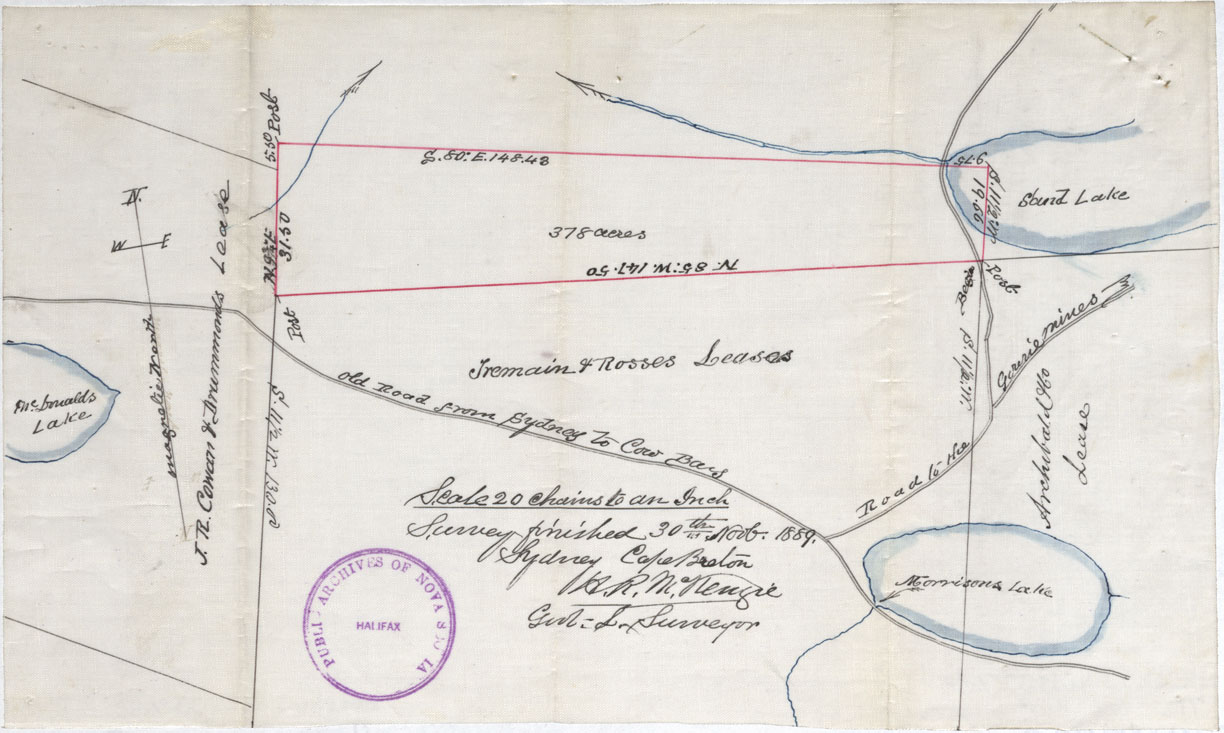 5.50 Post
S. 80: E. 148.48
9.75
19.66
Sand Lake
N.
W E
31.50
378 acres
N. 85: W. 147.50
Post
Begin
Post
J. R. Cowan & Drummonds Lease
magnetic North
McDonalds
Lake
Tremain & Rosses Leases
Gowrie mines
Road to the
Old Road from Sydney to Cow Bay
Archibald & Co
Lease
Scale 20 Chains to an Inch
Survey finished 30th Novb. 1889.
Sydney Cape Breton
H. R. McKenzie
Govt = L. Surveyor
Morrisons Lake
PUBLIC ARCHIVES OF NOVA SCOTIA
HALIFAX